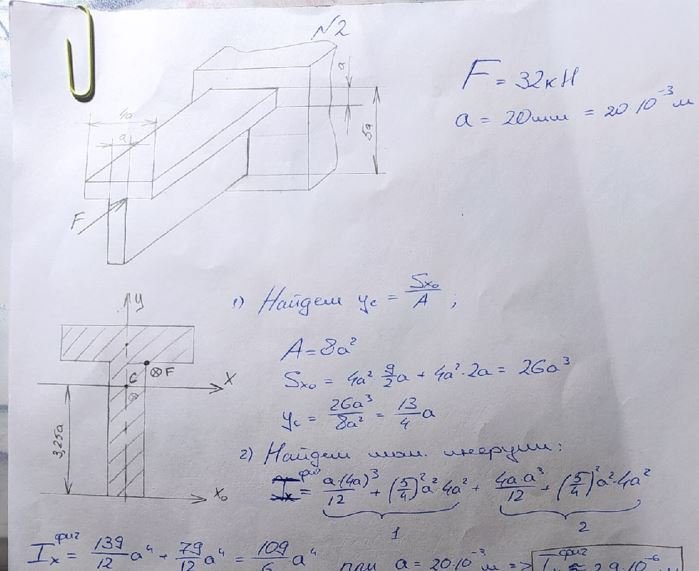 N2
a
F = 32кН
4a
a = 20мм = 20·10⁻³ м
a
5a
F
y
1) Найдем y_c = S_x₀ / A ,
A = 8a²
⊗F
S_x₀ = 4a² · 9/2 a + 4a² · 2a = 26a³
C
x
y_c = 26a³ / 8a² = 13/4 a
3,25a
2) Найдем мом. инерции:
I_x^фиг = a·(4a)³/12 + (5/4)² a² · 4a² + 4a·a³/12 + (5/4)² a² · 4a²
x₀
1
2
I_x^фиг = 139/12 a⁴ + 79/12 a⁴ = 109/6 a⁴
при a = 20·10⁻³ м =>